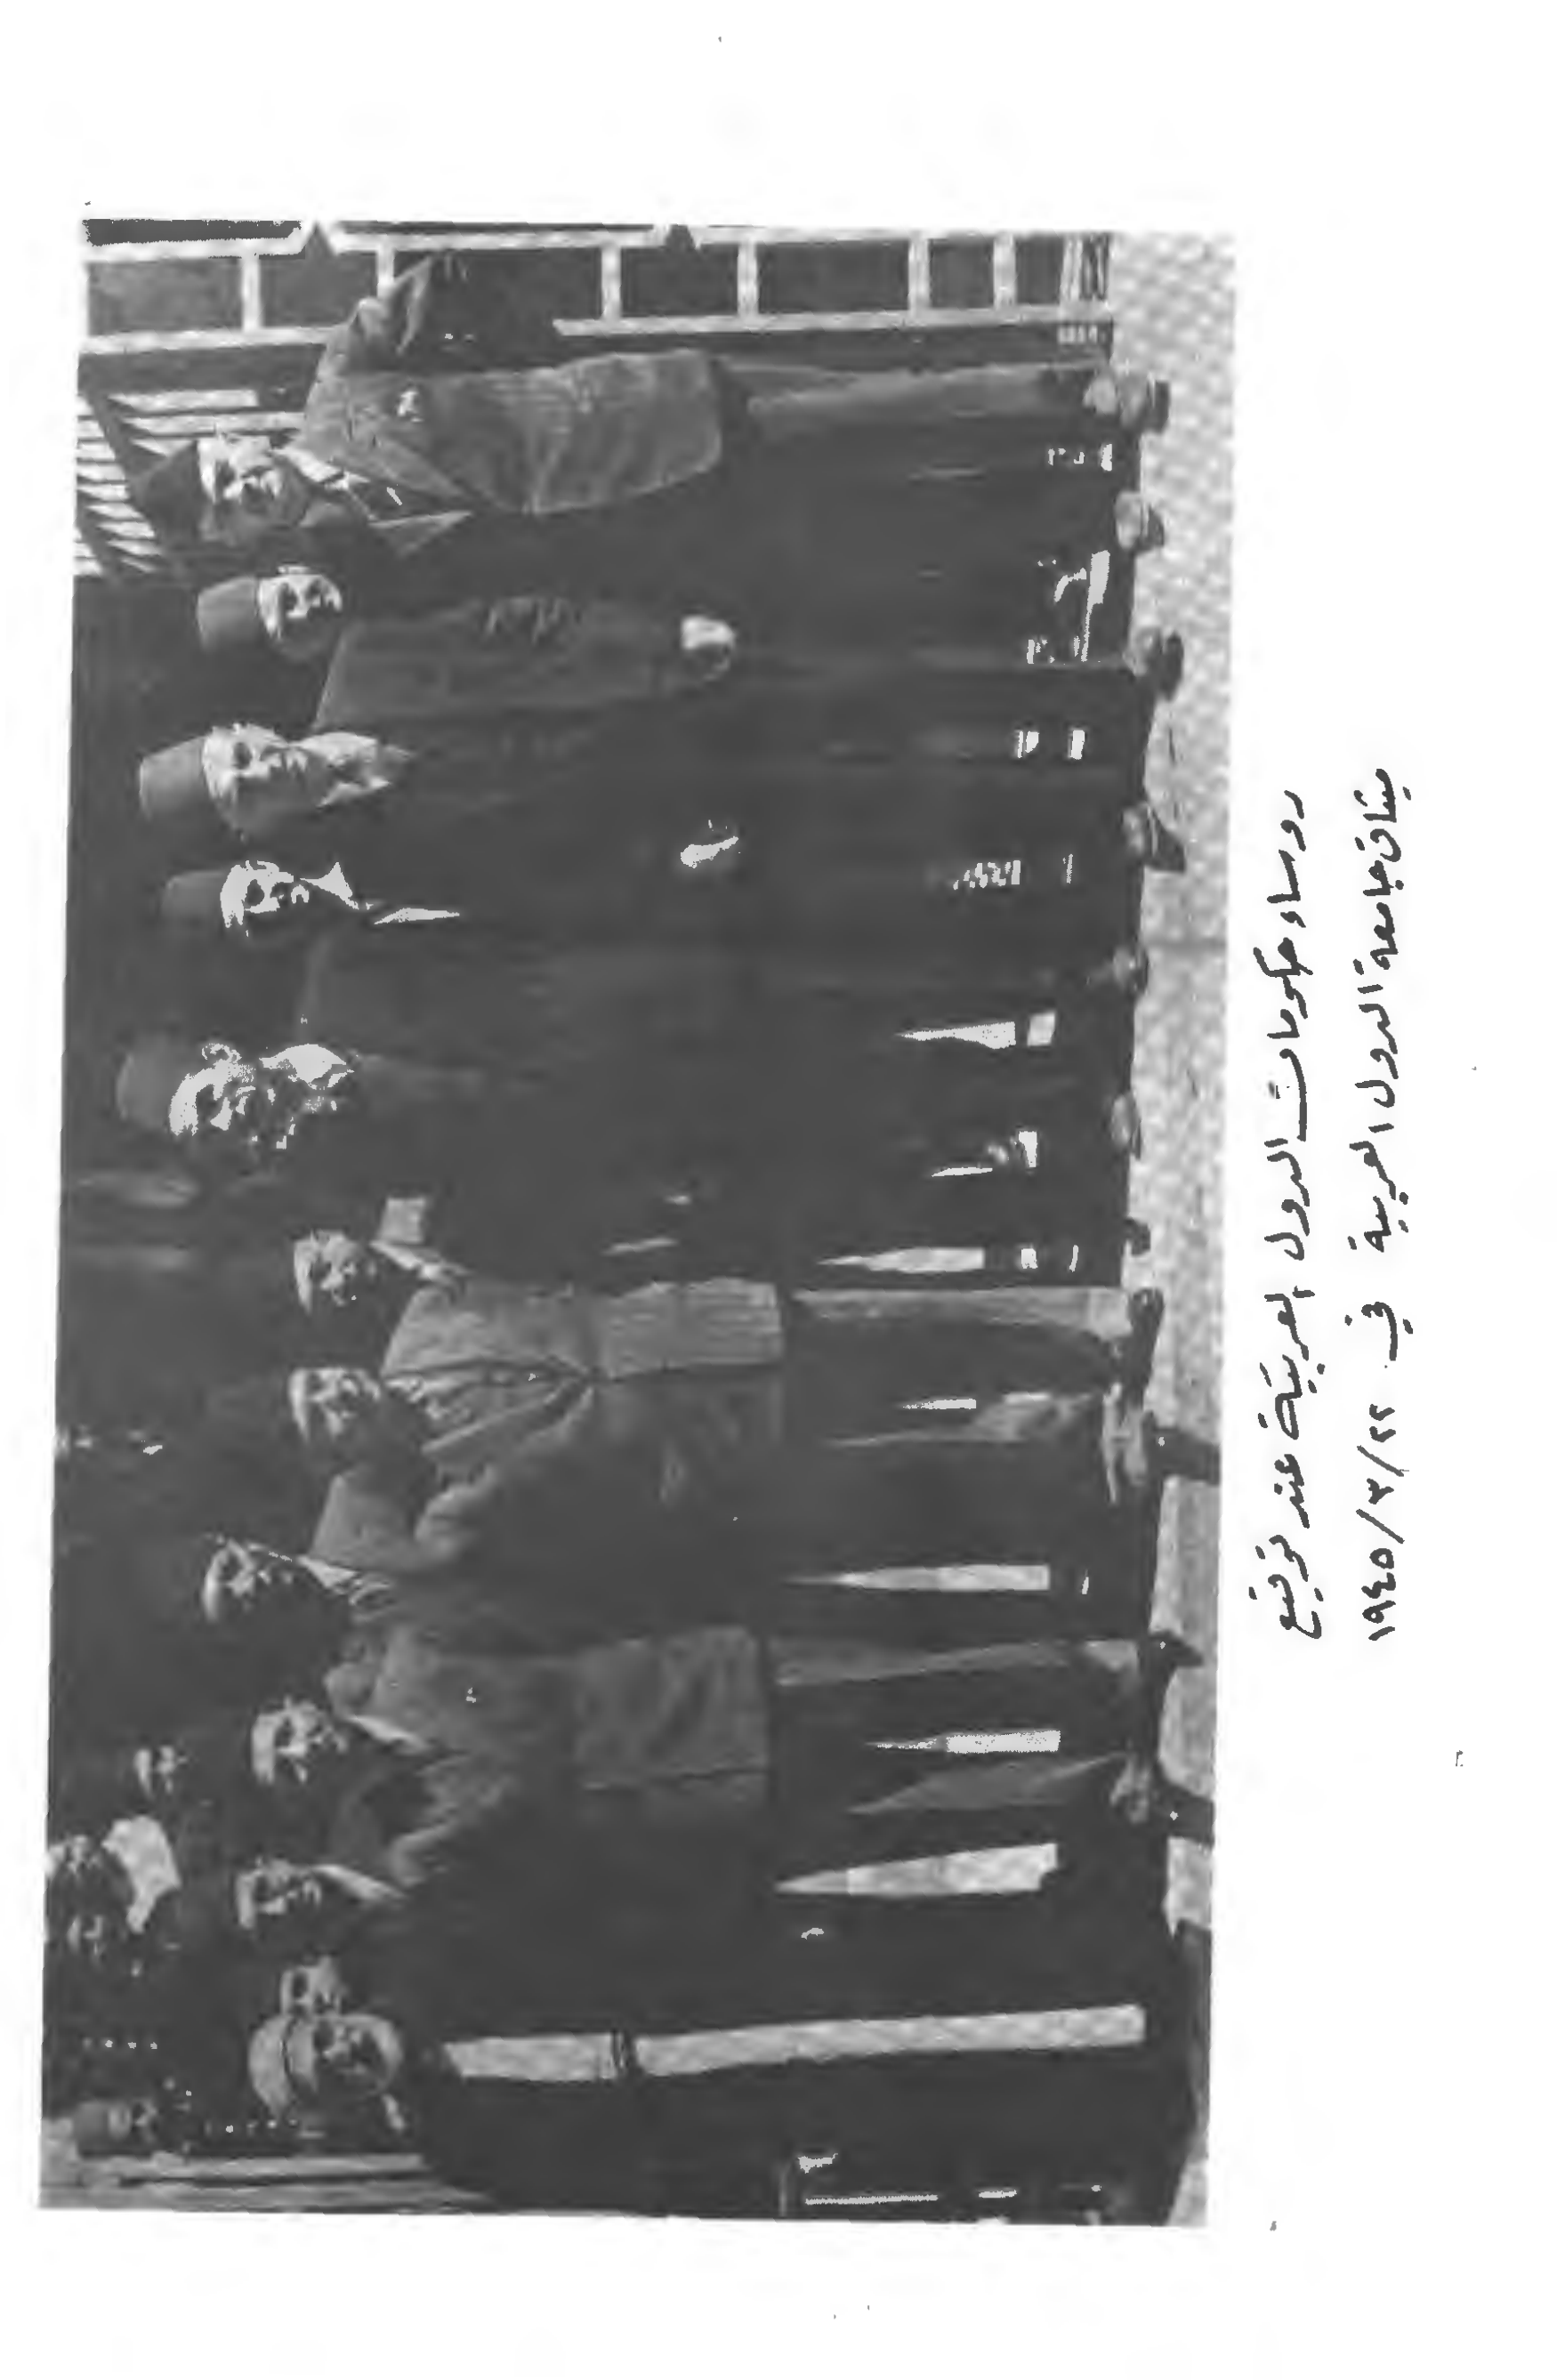 روساء حكومات الدول العربية عند توقيع
ميثاق جامعة الدول العربية في ١٩٤٥/٣/٢٢